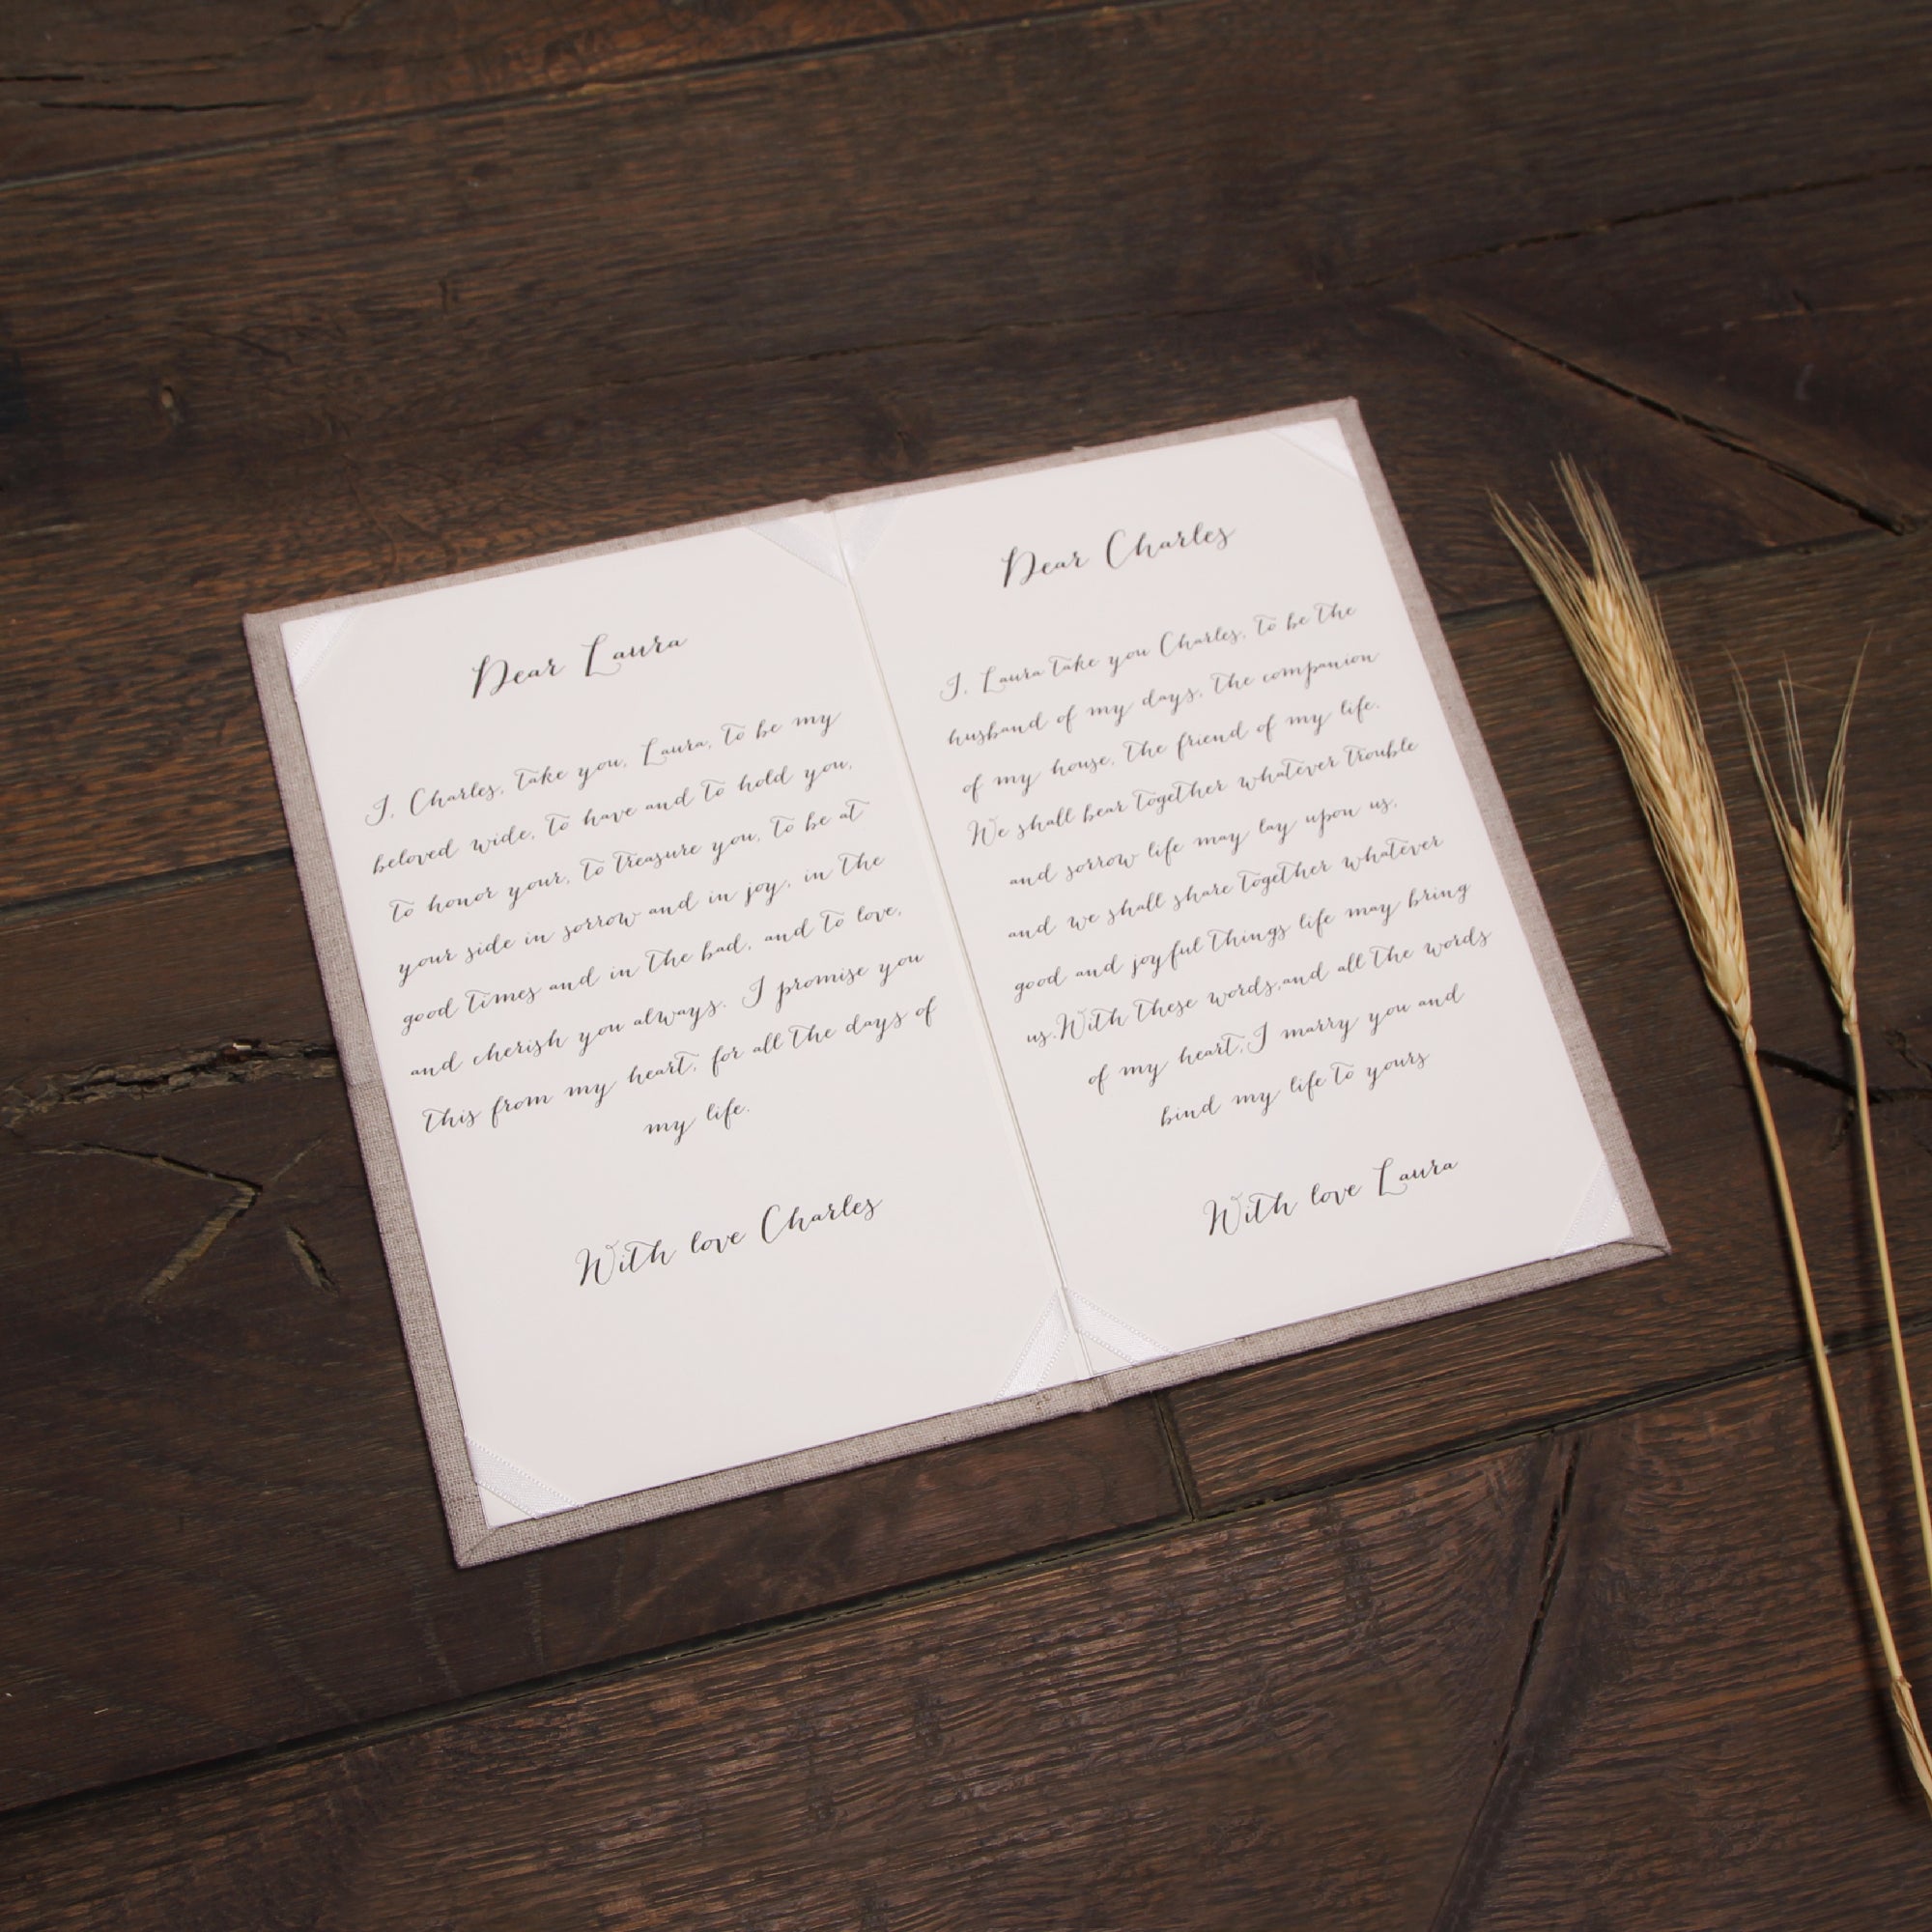 Dear Laura
I, Charles, take you, Laura, to be my
beloved wide, to have and to hold you,
to honor your, to treasure you, to be at
your side in sorrow and in joy, in the
good times and in the bad, and to love,
and cherish you always. I promise you
this from my heart, for all the days of
my life.
With love Charles
Dear Charles
I, Laura take you Charles, to be the
husband of my days, the companion
of my house, the friend of my life.
We shall bear together whatever trouble
and sorrow life may lay upon us,
and we shall share together whatever
good and joyful things life may bring
us.With these words,and all the words
of my heart,I marry you and
bind my life to yours
With love Laura